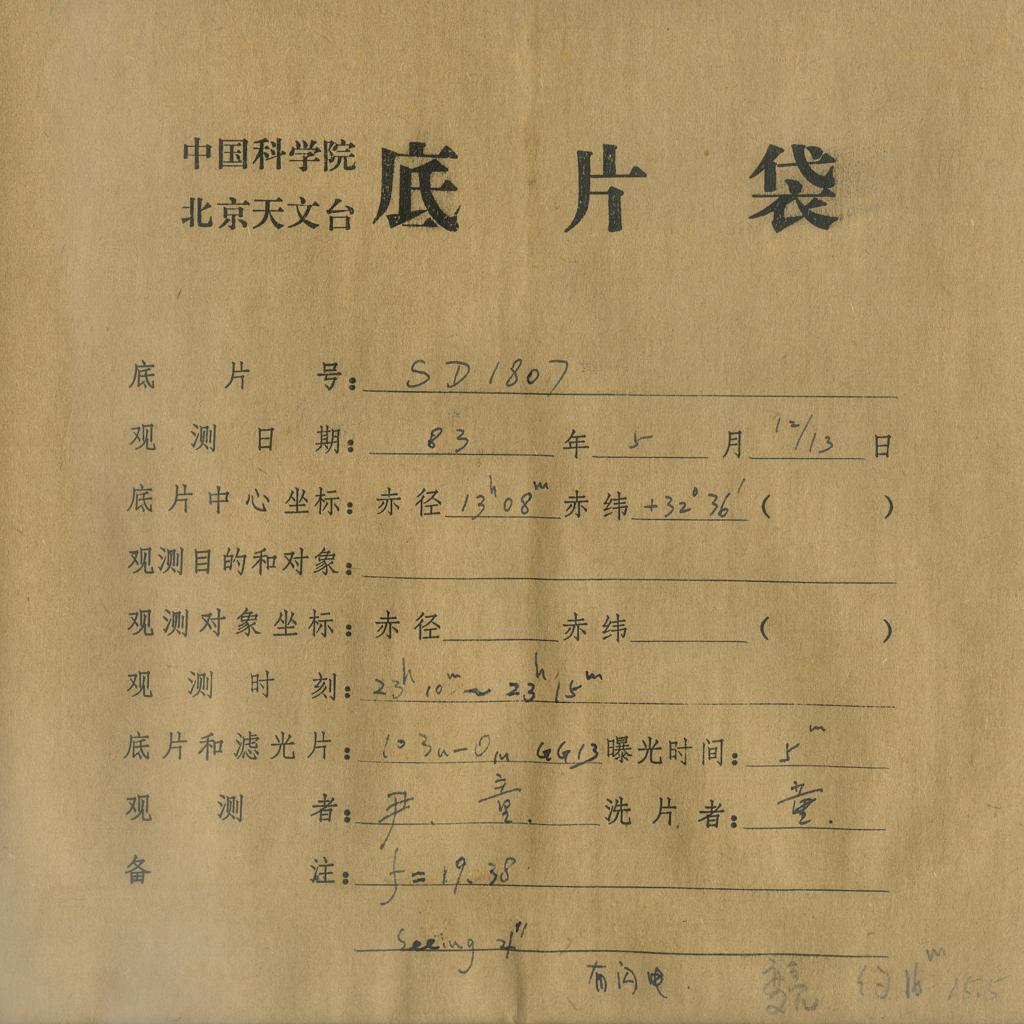 中国科学院
北京天文台
底片袋
底片号：SD1807
观测日期：83年5月12/13日
底片中心坐标：赤径13h08m赤纬+32°36′( )
观测目的和对象：
观测对象坐标：赤径 赤纬 ( )
观测时刻：23h10m～23h15m
底片和滤光片：103a-O GG13曝光时间：5m
观测者：尹.童.洗片者：童.
备注：f=19.38
Seeing 4″
有闪电.
约16m 15.5